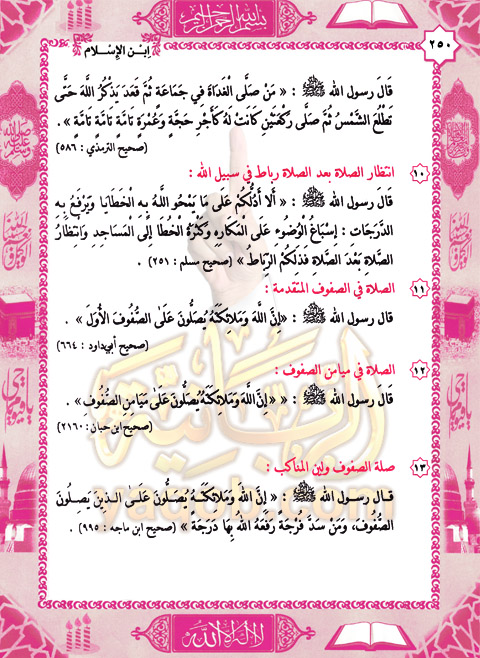 بسم الله الرحمن الرحيم
٢٥٠
ابن الإسلام
قَالَ رسول الله ﷺ : « مَنْ صَلَّى الْغَدَاةَ فِي جَمَاعَةٍ ثُمَّ قَعَدَ يَذْكُرُ اللَّهَ حَتَّى
تَطْلُعَ الشَّمْسُ ثُمَّ صَلَّى رَكْعَتَيْنِ كَانَتْ لَهُ كَأَجْرِ حَجَّةٍ وَعُمْرَةٍ تَامَّةٍ تَامَّةٍ تَامَّةٍ » .
(صحيح الترمذي : ٥٨٦)
١٠ انتظار الصلاة بعد الصلاة رباط في سبيل الله :
قَالَ رسول الله ﷺ : « أَلَا أَدُلُّكُمْ عَلَى مَا يَمْحُو اللَّهُ بِهِ الْخَطَايَا وَيَرْفَعُ بِهِ
الدَّرَجَاتِ : إِسْبَاغُ الْوُضُوءِ عَلَى الْمَكَارِهِ وَكَثْرَةُ الْخُطَا إِلَى الْمَسَاجِدِ وَانْتِظَارُ
الصَّلَاةِ بَعْدَ الصَّلَاةِ فَذَلِكُمُ الرِّبَاطُ » (صحيح مسلم : ٢٥١) .
١١ الصلاة في الصفوف المتقدمة :
قال رسول الله ﷺ : «إِنَّ اللَّهَ وَمَلَائِكَتَهُ يُصَلُّونَ عَلَى الصُّفُوفِ الْأُوَلِ» .
(صحيح أبي داود : ٦٦٤)
١٢ الصلاة في ميامن الصفوف :
قَالَ رسول الله ﷺ : « «إِنَّ اللَّهَ وَمَلَائِكَتَهُ يُصَلُّونَ عَلَى مَيَامِنِ الصُّفُوفِ» .
(صحيح ابن حبان : ٢١٦٠)
١٣ صلة الصفوف ولين المناكب :
قَالَ رسول الله ﷺ : «إِنَّ اللَّهَ وَمَلَائِكَتَهُ يُصَلُّونَ عَلَى الَّذِينَ يَصِلُونَ
الصُّفُوفَ، وَمَنْ سَدَّ فُرْجَةً رَفَعَهُ اللَّهُ بِهَا دَرَجَةً » (صحيح ابن ماجه : ٩٩٥) .
yaqob.com
لا إله إلا الله